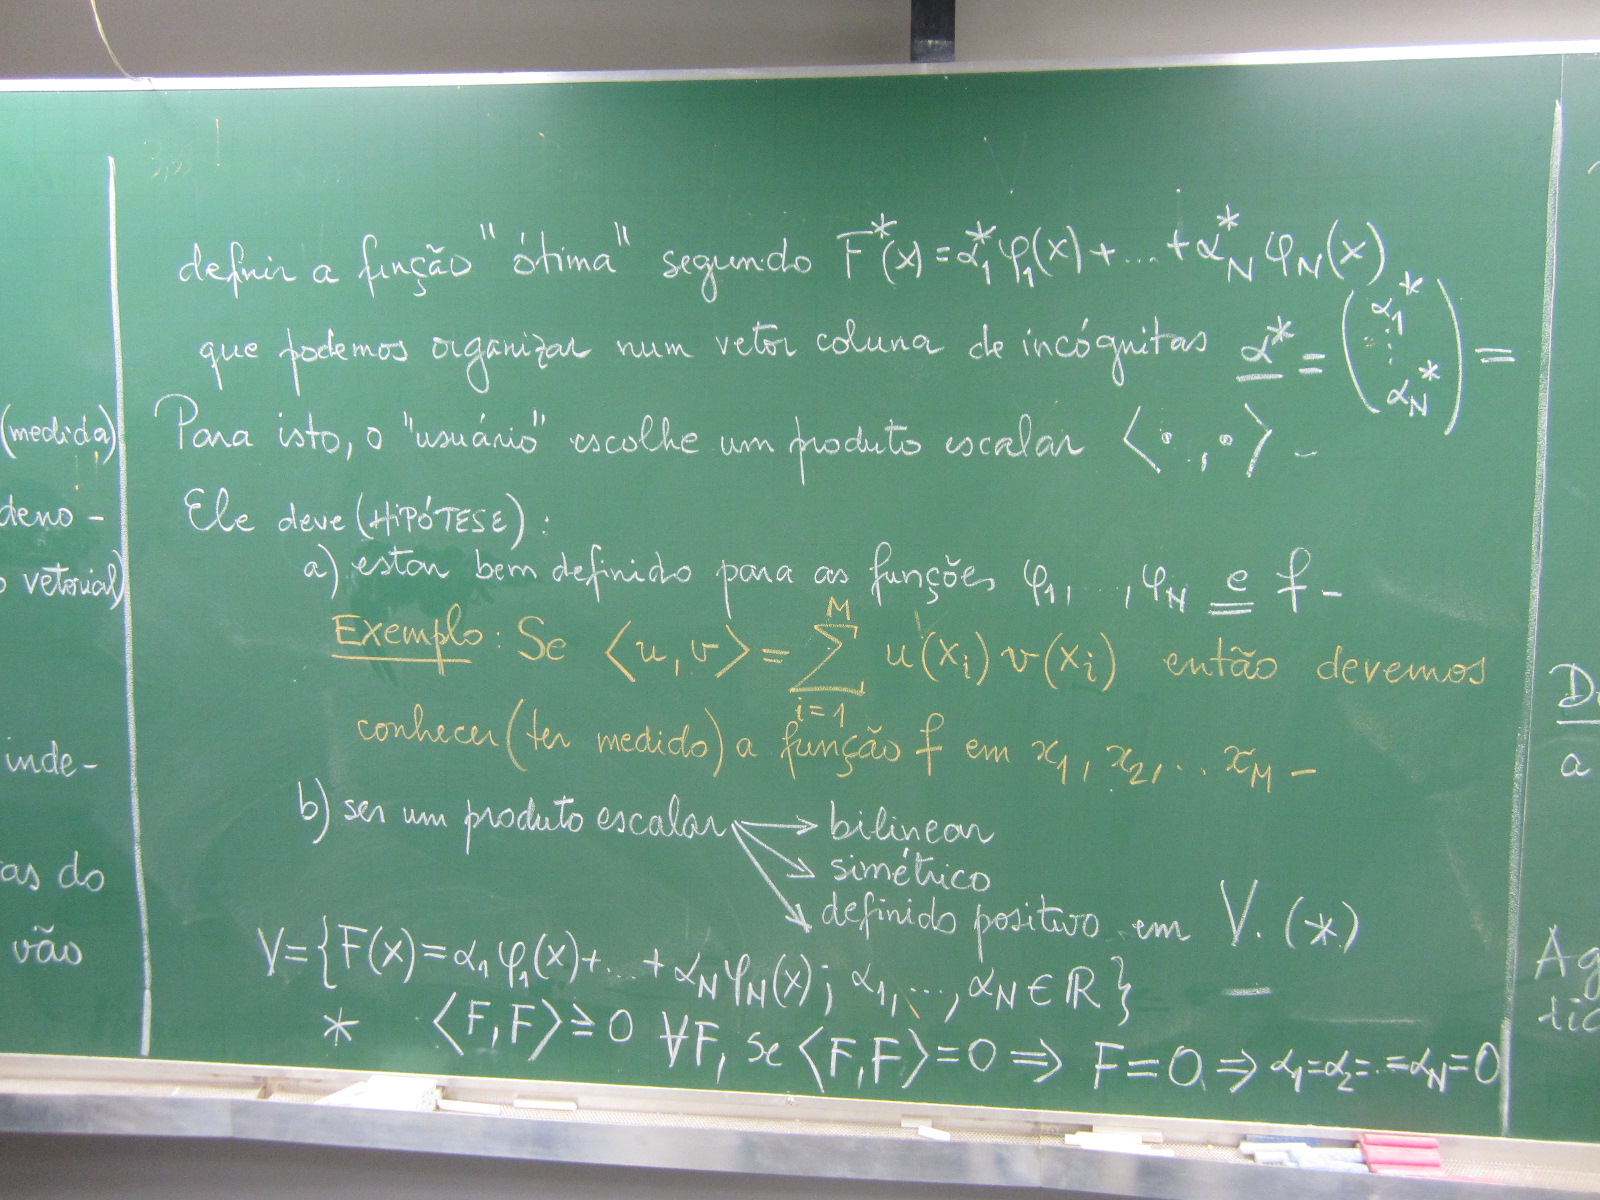 definir a função "ótima" segundo F*(x) = α₁* φ₁(x) + ... + α_N* φ_N(x)
que podemos organizar num vetor coluna de incógnitas α* = (α₁* ⋮ α_N*) =
Para isto, o "usuário" escolhe um produto escalar ⟨·,·⟩ -
Ele deve (HIPÓTESE) :
a) estar bem definido para as funções φ₁, ..., φ_N e f -
Exemplo : Se ⟨u,v⟩ = ∑_{i=1}^{M} u(x_i) v(x_i) então devemos
conhecer (ter medido) a função f em x₁, x₂, ... x_M -
b) ser um produto escalar → bilinear
→ simétrico
→ definido positivo em V. (*)
V = {F(x) = α₁ φ₁(x) + ... + α_N φ_N(x) ; α₁, ..., α_N ∈ ℝ}
* ⟨F,F⟩ ≥ 0 ∀F, Se ⟨F,F⟩ = 0 ⇒ F = 0 ⇒ α₁ = α₂ = ... = α_N = 0
(medida)
deno -
vetorial)
inde -
as do
vão
a